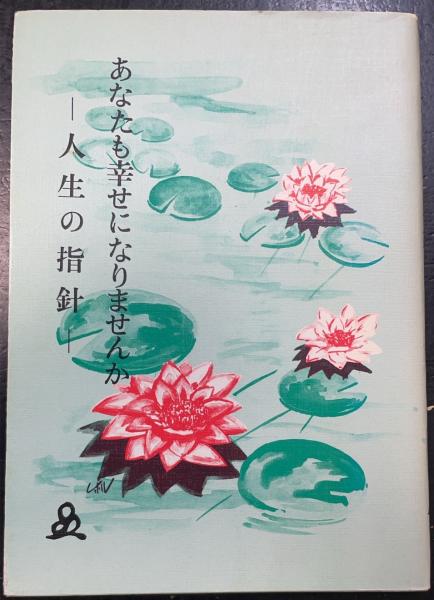 あなたも幸せになりませんか
―人生の指針―